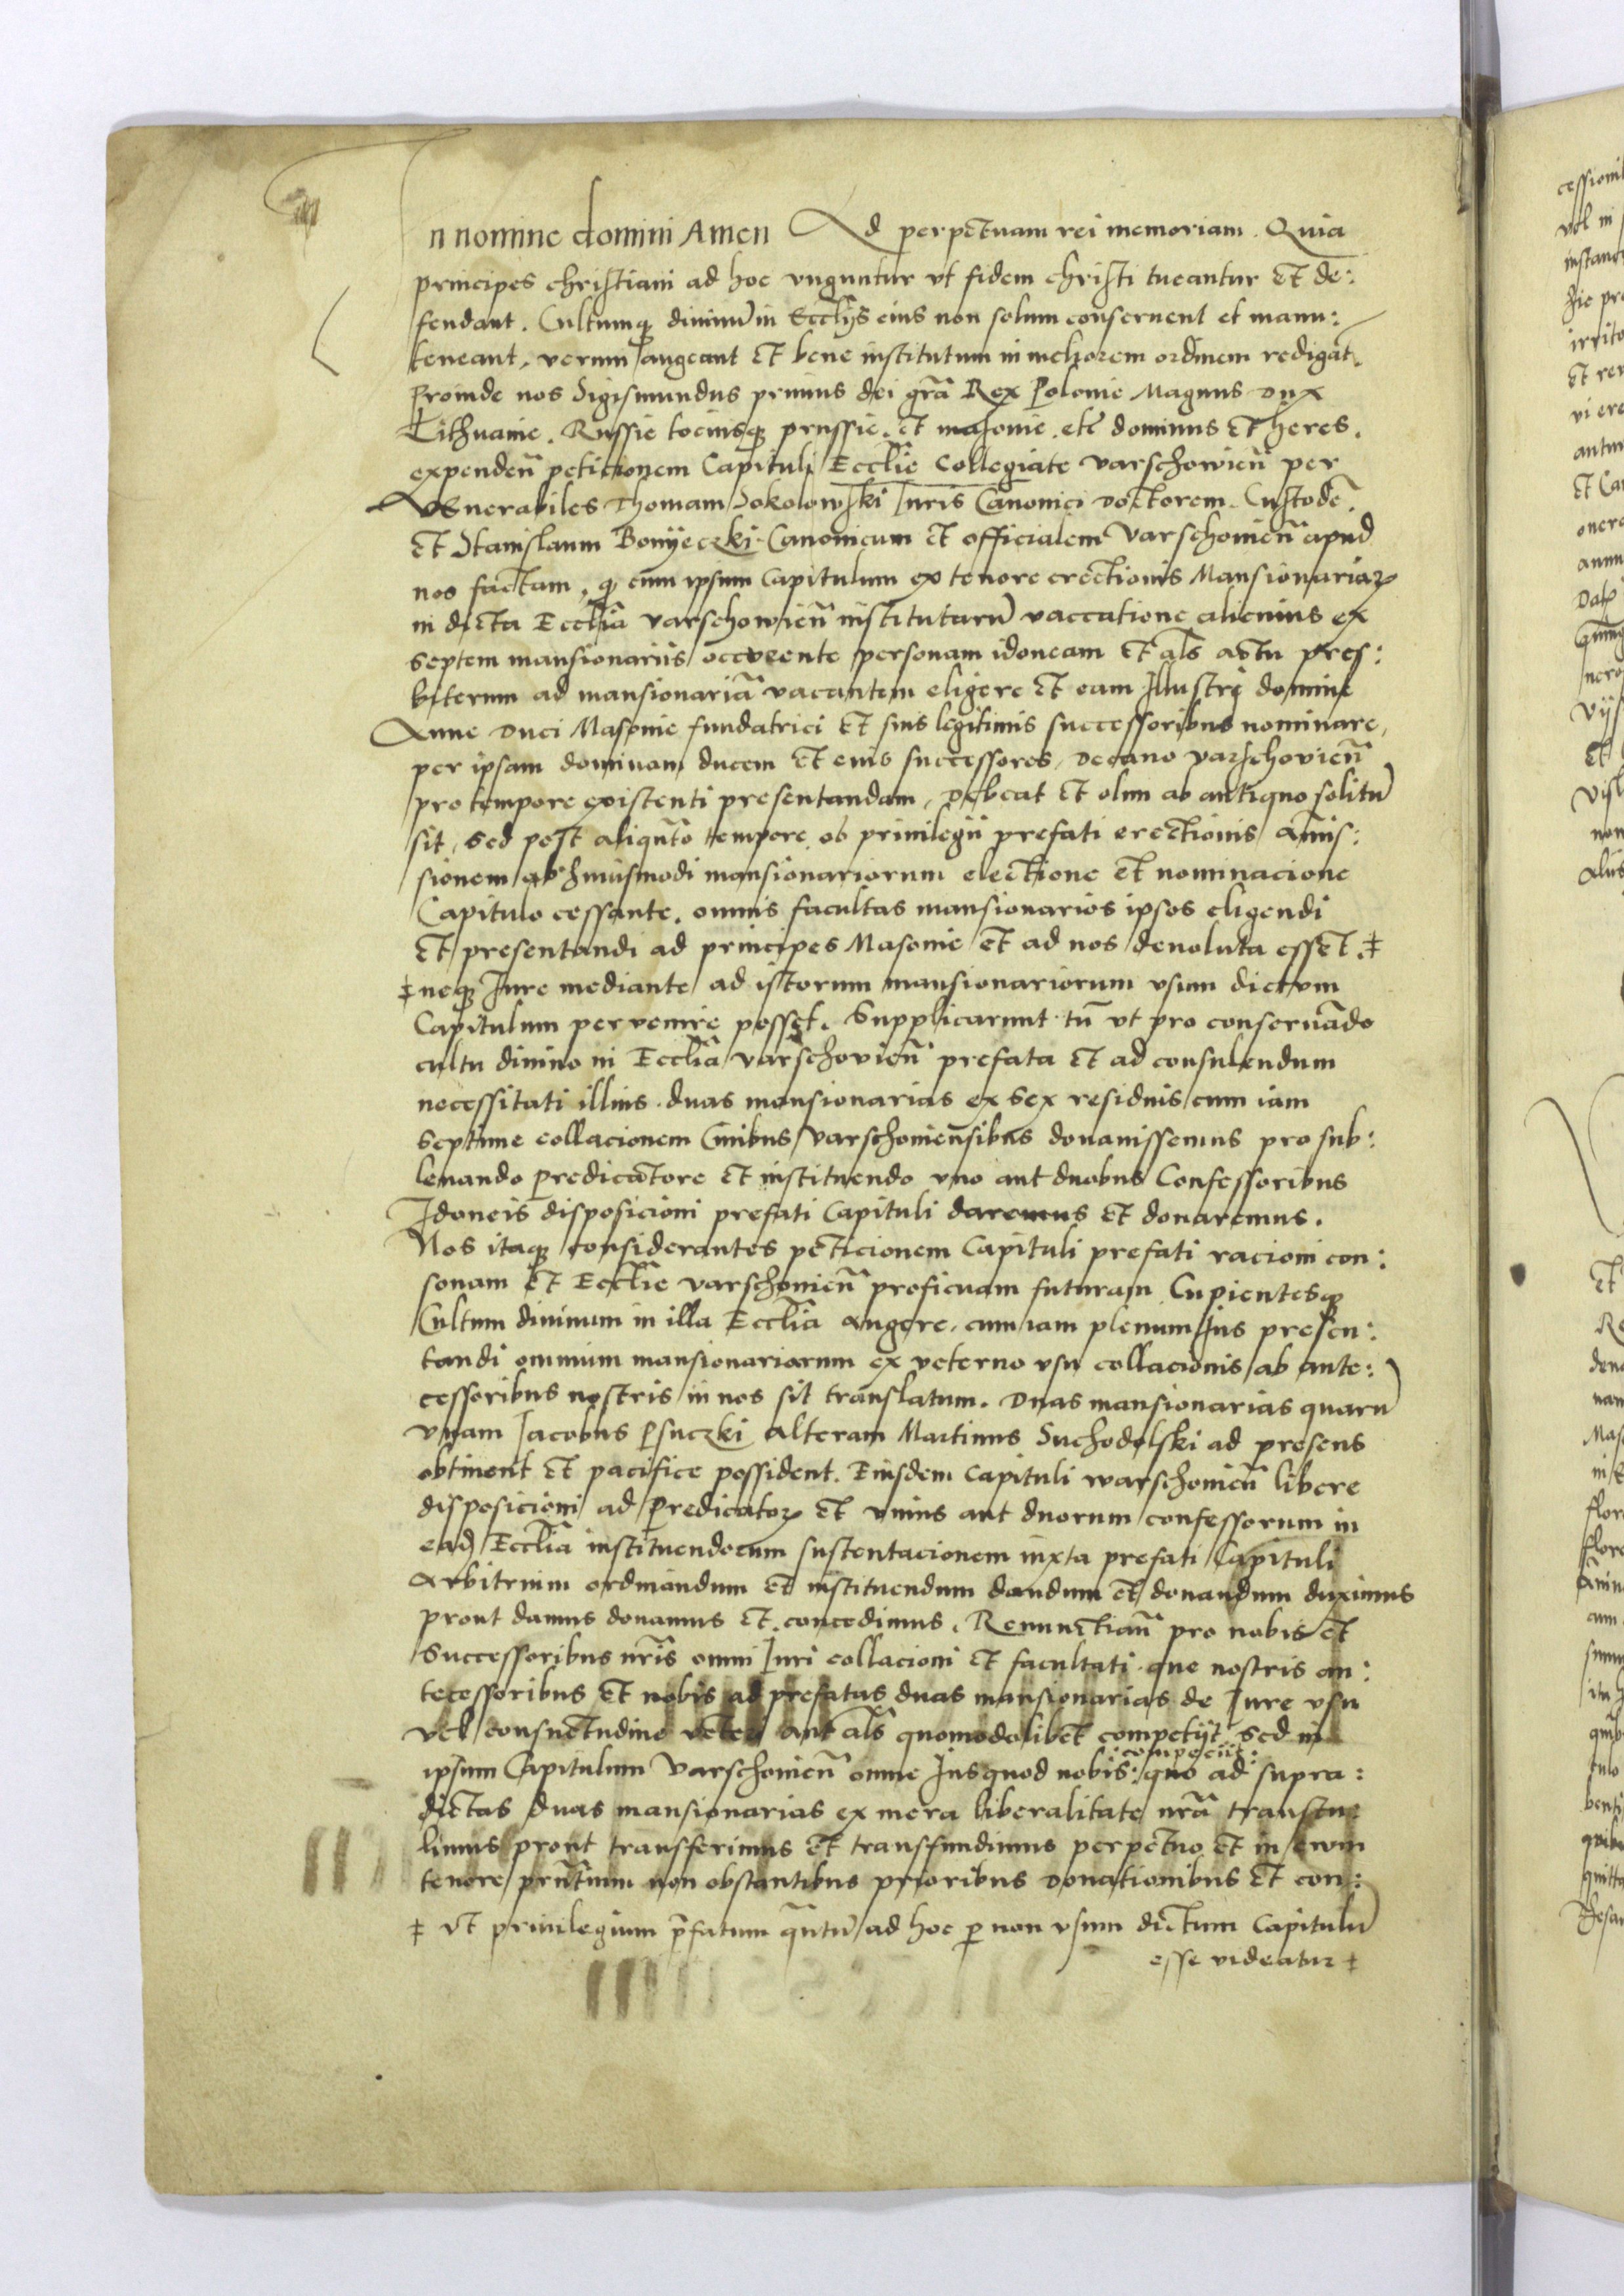 In nomine domini Amen Ad perpetuam rei memoriam. Quia
principes christiani ad hoc vnguntur vt fidem christi tueantur et de:
fendant. Cultumq diuinū in Ecclijs eius non solum conseruent et manu:
teneant, verum augeant et bene institutum in meliorem ordinem redigāt.
Proinde nos Sigismundus primus dei grā Rex Polonie Magnus Dux
Lithuanie. Russie tociusq prussie. et masouie. etc dominus et heres.
expendeñ peticionem Capituli Ecclīe Collegiate varschowieñ per
Venerabiles Thomam Sokolowski Juris Canonici doctorem. Custodē.
et Stanislaum Bonyeczki. Canonicum et officialem varschouieñ apud
nos factam, q cum ipsum Capitulum ex tenore erectionis Mansionariaꝝ
in dicta Ecclīa varschowieñ institutarū vaccatione alicuius ex
septem mansionariis occurente personam idoneam et als actu pres:
biterum ad mansionariā vacantem eligere et eam Illustri domine
Anne Duci Masouie fundatrici et suis legitimis successoribus nominare,
per ipsam dominam ducem et eius successores, decano varschouieñ
pro tempore existenti presentandam, debeat et olim ab antiquo solitū
sit, Sed post aliqñto tempore ob priuilegii prefati erectionis amis:
sionem ab hmusmodi mansionariorum electione et nominacione
Capitulo cessante. omnis facultas mansionarios ipsos eligendi
et presentandi ad principes Masouie et ad nos deuoluta esset. ‡
‡ neq Jure mediante ad istorum mansionariorum vsum dictum
Capitulum peruenire posset. Supplicarunt tñ vt pro conseruādo
cultu diuino in Ecclīa varschouieñ prefata et ad consulendum
necessitati illius. duas mansionarias ex sex residuis cum iam
septime collacionem Ciuibus varschouiensibus donauissemus pro sub:
leuando predicatore et instituendo vno aut duobus Confessoribus
Idoneis disposicioni prefati Capituli daremus et donaremus.
Nos itaq considerantes peticionem Capituli prefati racioni con:
sonam et Ecclīe varschouieñ proficuam futuram Cupientesq
Cultum diuinum in illa Ecclīa augere, cum iam plenum Jus presen:
tandi omnium mansionariorum ex veterno vsu collacionis ab ante:
cessoribus nostris in nos sit translatum. Duas mansionarias quarū
vnam Jacobus Psuczki alteram Martinus Suchodolski ad presens
obtinent et pacifice possident. Eiusdem Capituli warschouieñ libere
disposicioni ad predicatoꝝ et vnius aut duorum confessorum in
ead Ecclīa instituendorum sustentacionem iuxta prefati Capituli
Arbitrium ordinandum et instituendum dandum et donandum duximus
prout damus donamus et concedimus. Renunctiañ pro nobis et
Successoribus nrīs omni Juri collacioni et facultati que nostris an:
tecessoribus et nobis ad prefatas duas mansionarias de Jure vsu
vel consuetudine veteri aut als quomodolibet competijt Sed in
:competijt:
ipsum Capitulum varschouieñ omne Jus quod nobis: quo ad supra:
dictas duas mansionarias ex mera liberalitate nrā transtu:
limus prout transferimus et transfundimus perpetuo et in euum
tenore prñtium non obstantibus prioribus donationibus et con:
‡ vt priuilegium p̄fatum qñtū ad hoc p non vsum dictum Capitulū
esse videatur ‡